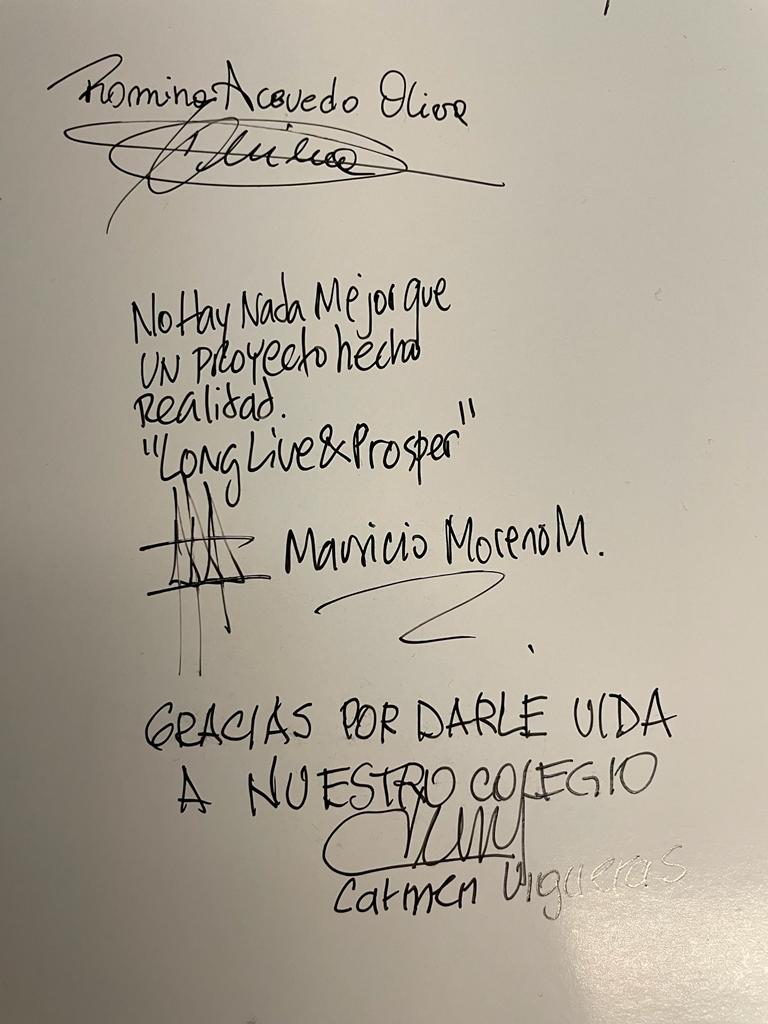 Romina Acevedo Oliva
No Hay Nada Mejor que
UN PROyecto hecho
Realidad.
"Long Live & Prosper"
Mauricio Moreno M.
GRACIAS POR DARLE VIDA
A NUESTRO COLEGIO
Carmen Vigueras